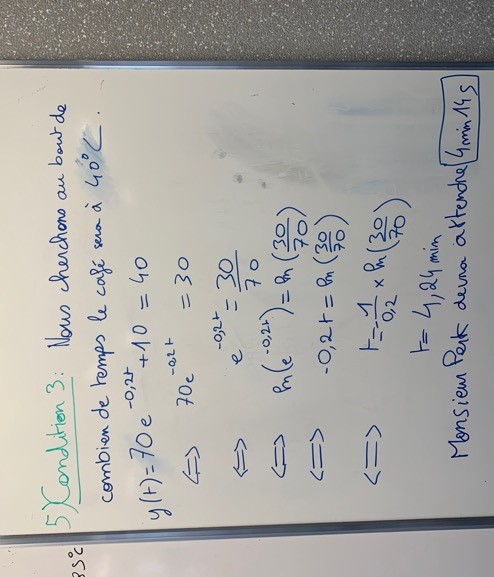 5) Condition 3 : Nous cherchons au bout de
combien de temps le café sera à 40°C.
y(t) = 70e^-0,2t + 10 = 40
<=> 70e^-0,2t = 30
<=> e^-0,2t = 30/70
<=> ln(e^-0,2t) = ln(30/70)
<=> -0,2t = ln(30/70)
<=> t = -1/0,2 x ln(30/70)
t = 4,24 min
Monsieur Perk devra attendre 4min 14s
35°C